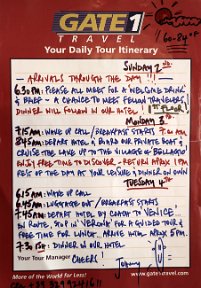 GATE 1
TRAVEL
Your Daily Tour Itinerary
60-84°F
SUNDAY 2ND
— ARRIVALS THROUGH THE DAY !!! —
6.30PM: PLEASE ALL MEET FOR A 'WELCOME DRINK'
& BRIEF - A CHANCE TO MEET FELLOW TRAVELERS
DINNER WILL FOLLOW IN OUR HOTEL
MONDAY 3RD
7.15AM: WAKE UP CALL / BREAKFAST STARTS 7.00AM
8.45AM: DEPART HOTEL & BOARD OUR PRIVATE BOAT &
CRUISE THE LAKE UP TO THE VILLAGE OF 'BELLAGIO'
ENJOY FREE TIME TO DISCOVER - RETURN APROX 1PM
REST OF THE DAY AT YOUR LEISURE & DINNER ON OWN
TUESDAY 4TH
6.15AM: WAKE UP CALL
6.45AM: LUGGAGE OUT / BREAKFAST STARTS
7.45AM: DEPART HOTEL BY COACH TO 'VENICE'
EN ROUTE, STOP IN 'VERONA' FOR A GUIDED TOUR &
FREE TIME FOR LUNCH. ARRIVE HOTEL APROX 5PM.
7.30PM: DINNER IN OUR HOTEL
Your Tour Manager CHEERS!
More of the World for Less!
www.gate1travel.com